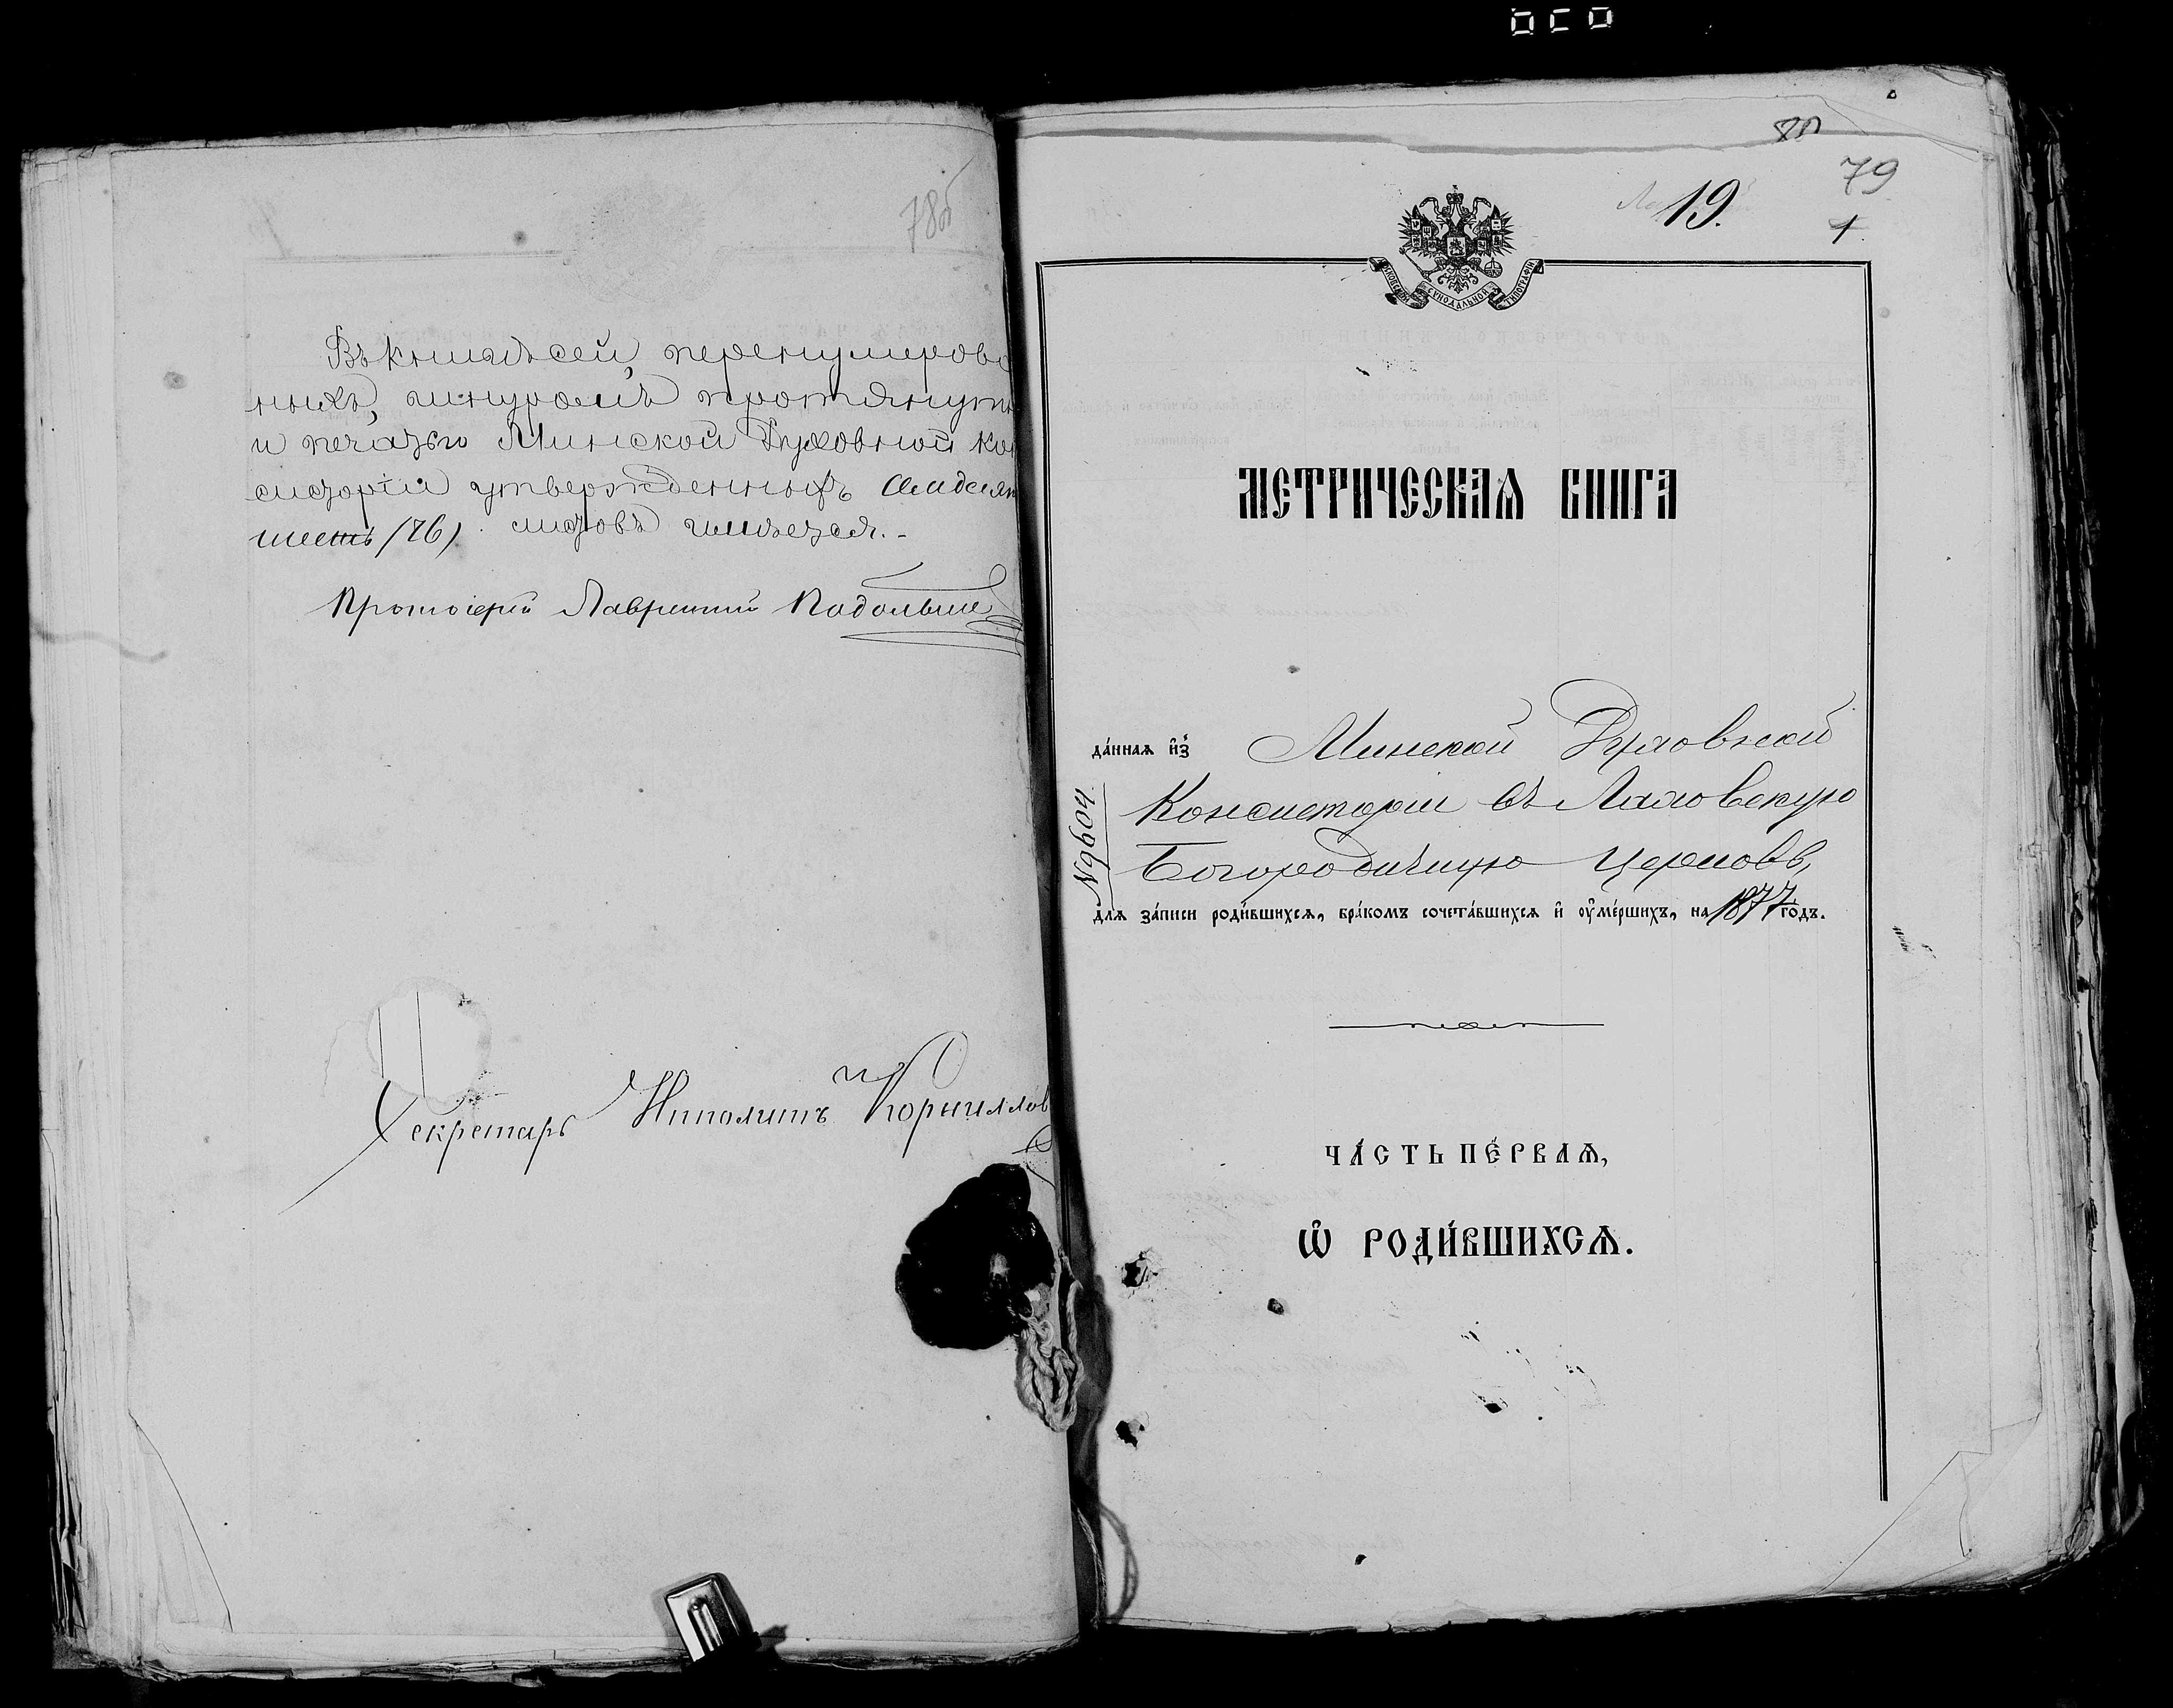 78об
Въ книгѣ сей, перенумерова
ныхъ, шнуромъ протянуты
и печатью Минской Духовной Кон
систоріи утвержденныхъ семдесят
шесть (76) листовъ имѣется.-
Протоіерей Лаврентій
Секретарь Ипполитъ Корнилов
80
79
19.
1
МОСКОВСКОЙ СѴНОДАЛЬНОЙ ТИПОГРАФІИ
МЕТРИЧЕСКАѦ КНИГА
да́ннаѧ и҆з̾ Минской Духовной
Консисторіи въ Ляховскую
Богородичную церковь,
№9604
для за́писи роди́вшихсѧ, бра́комъ сочета́вшихсѧ и҆ ᲂу҆ме́ршихъ, на 1877 го́дъ.
ЧА́СТЬ ПЕ́РВАѦ,
Ѽ РОДИ́ВШИХСѦ.